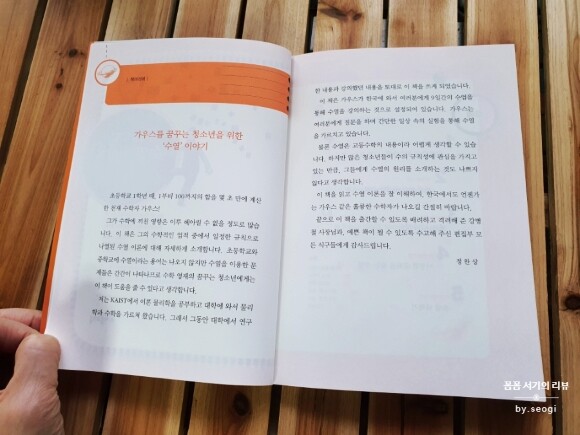 책머리에
가우스를 꿈꾸는 청소년을 위한
‘수열’ 이야기
초등학교 1학년 때, 1부터 100까지의 합을 몇 초 만에 계산
한 천재 수학자 가우스!
그가 수학에 끼친 영향은 이루 헤아릴 수 없을 정도로 많습
니다. 이 책은 그의 수학적인 업적 중에서 일정한 규칙으로
나열된 수열 이론에 대해 자세하게 소개합니다. 초등학교와
중학교에 수열이라는 용어는 나오지 않지만 수열을 이용한 문
제들은 간간이 나타나므로 수학 영재의 꿈꾸는 청소년에게는
이 책이 도움을 줄 수 있다고 생각합니다.
저는 KAIST에서 이론 물리학을 공부하고 대학에 와서 물리
학과 수학을 가르쳐 왔습니다. 그래서 그동안 대학에서 연구
한 내용과 강의했던 내용을 토대로 이 책을 쓰게 되었습니다.
이 책은 가우스가 한국에 와서 여러분에게 9일간의 수업을
통해 수열을 강의하는 것으로 설정되어 있습니다. 가우스는
여러분에게 질문을 하며 간단한 일상 속의 실험을 통해 수열
을 가르치고 있습니다.
물론 수열은 고등수학의 내용이라 어렵게 생각할 수 있습
니다. 하지만 많은 청소년들이 수의 규칙성에 관심을 가지고
있는 만큼, 그들에게 수열의 원리를 소개하는 것도 나쁘지
않다고 생각합니다.
이 책을 읽고 수열 이론을 잘 이해하여, 한국에서도 언젠가
는 가우스 같은 훌륭한 수학자가 나오길 간절히 바랍니다.
끝으로 이 책을 출간할 수 있도록 배려하고 격려해 준 강병
철 사장님과, 예쁜 책이 될 수 있도록 수고해 주신 편집부 모
든 식구들에게 감사드립니다.
정 완 상
폼폼 서기의 리뷰
by.seogi